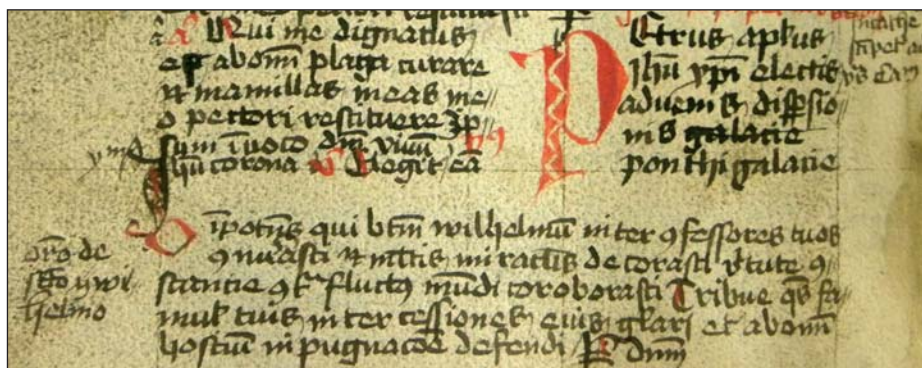 Qui me dignatus
est ab om̄i plaga curare
et mamillas meas me//
o pectori restituere Ip//
sum īuoco dn̄m viuū
Ihū corona Elegit eā
PEtrus apl̄us
Ihū xp̄i electis
aduenis disp̄sio//
nis galacie
ponthi galacie
or̄o de
sc̄to wi//
lhelmo
O īpot̄ns qui bt̄m wilhelmū inter ꝯfessores tuos
ꝯ et ml̄tis miraclis decorasti v̄tute ꝯ//
stantie ꝯt̄ fluctꝰ mūdi coroborasti Tribue qs̄ fa//
mul̄ tuis intercessiones eius gl̄ari et ab om̄i
hostiū inpugnacōe defendi P dn̄m